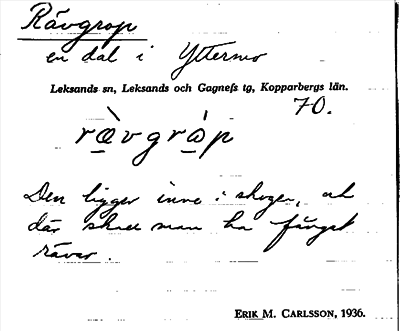 Rävgrop
en dal i Yttermo
Leksands sn, Leksands och Gagnefs tg, Kopparbergs län.
70.
ræ̱̀vgrа̱̀p
Den ligger inne i skogen, och
där skall man ha fångat
rävar.
ERIK M. CARLSSON, 1936.